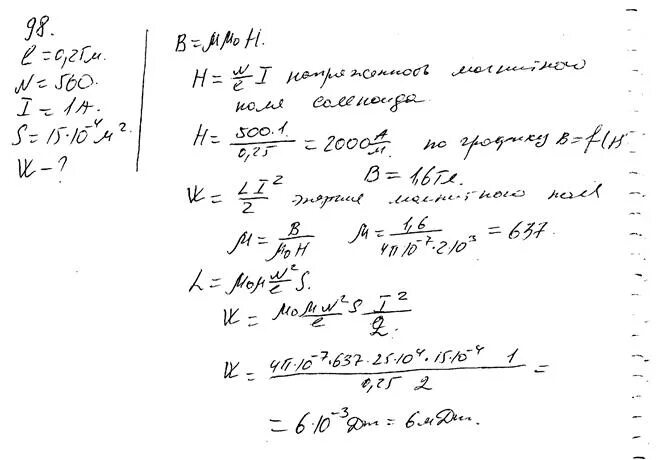 98.
ℓ = 0,25м.
N = 560.
I = 1А.
S = 15·10⁻⁴м².
W – ?
B = μμ₀H.
H = N/ℓ I напряженность магнитного
поля соленоида.
H = 500·1/0,25 = 2000 А/м. по графику B = f(H
B = 1,6Тл.
W = LI²/2 энергия магнитного поля
μ = B/μ₀H μ = 1,6/4π·10⁻⁷·2·10³ = 637.
L = μ₀μ N²/ℓ S.
W = μ₀μN²S/ℓ I²/2.
W = 4π·10⁻⁷·637·25·10⁴·15·10⁻⁴ 1/0,25 2 =
= 6·10⁻³Дж = 6мДж.